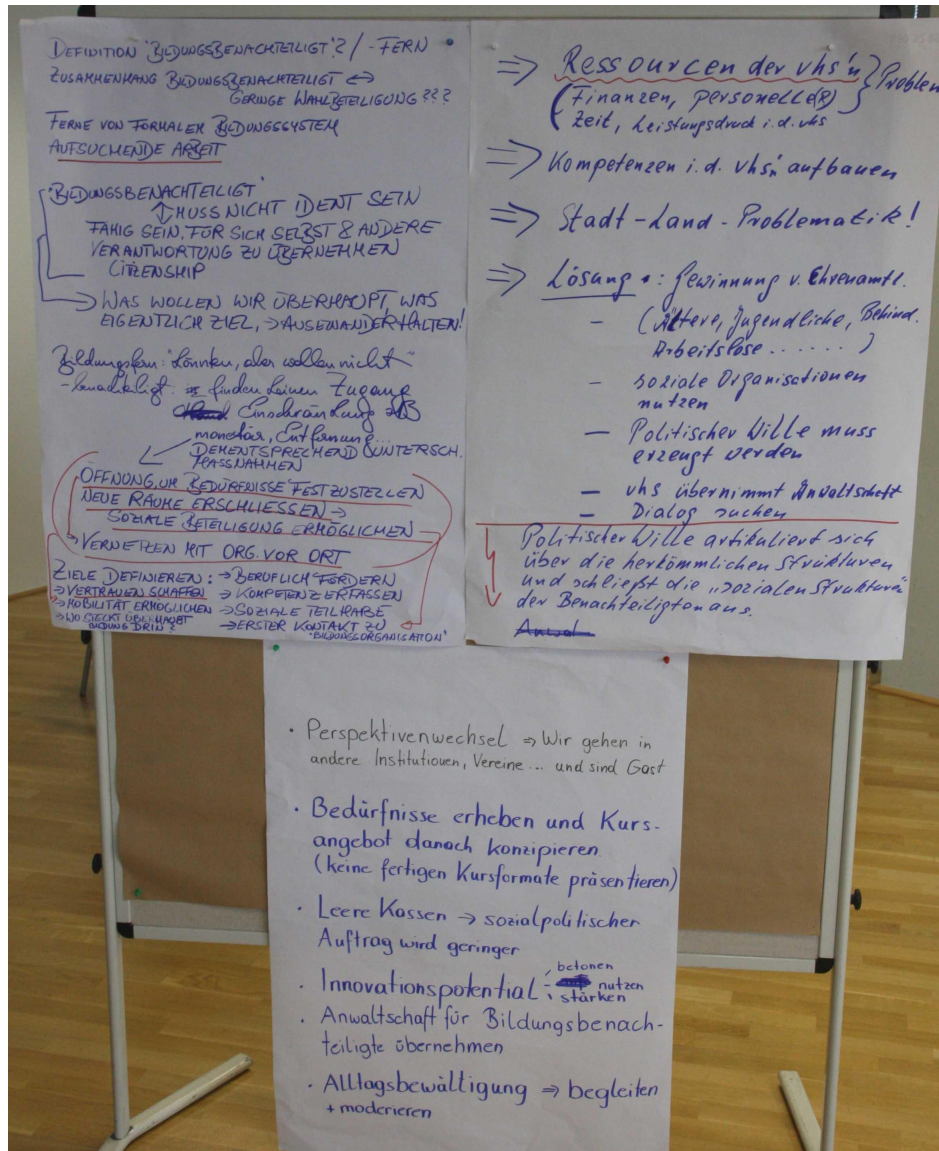 DEFINITION 'BILDUNGSBENACHTEILIGT'? / -FERN
ZUSAMMENHANG BILDUNGSBENACHTEILIGT ↔
GERINGE WAHLBETEILIGUNG ???
FERNE VON FORMALEM BILDUNGSSYSTEM
AUFSUCHENDE ARBEIT
'BILDUNGSBENACHTEILIGT'
↕ MUSS NICHT IDENT SEIN
FÄHIG SEIN, FÜR SICH SELBST & ANDERE
VERANTWORTUNG ZU ÜBERNEHMEN
CITIZENSHIP
→ WAS WOLLEN WIR ÜBERHAUPT, WAS
EIGENTLICH ZIEL, → AUSEINANDERHALTEN!
Bildungsfern: "könnten, aber wollen nicht"
-benachteiligt: finden keinen Zugang
Einschränkung zB
monetär, Entfernung...
DEMENTSPRECHEND UNTERSCH.
MASSNAHMEN
ÖFFNUNG, UM BEDÜRFNISSE FESTZUSTELLEN
NEUE RÄUME ERSCHLIESSEN →
SOZIALE BETEILIGUNG ERMÖGLICHEN
→ VERNETZEN MIT ORG. VOR ORT
ZIELE DEFINIEREN: → BERUFLICH FÖRDERN
→ VERTRAUEN SCHAFFEN → KOMPETENZ ERFASSEN
→ MOBILITÄT ERMÖGLICHEN → SOZIALE TEILHABE
→ WO STECKT ÜBERHAUPT → ERSTER KONTAKT ZU
BILDUNG DRIN? 'BILDUNGSORGANISATION'
⇒ Ressourcen der vhs'n } Problem
(Finanzen, personelle(R)
Zeit, Leistungsdruck i.d. vhs
⇒ Kompetenzen i.d. vhs'n aufbauen
⇒ Stadt-Land-Problematik!
⇒ Lösung: Gewinnung v. Ehrenamtl.
- (Ältere, Jugendliche, Behind.
Arbeitslose ......)
- soziale Organisationen
nutzen
- Politischer Wille muss
erzeugt werden
- vhs übernimmt Anwaltschaft
- Dialog suchen
Politischer Wille artikuliert sich
über die herkömmlichen Strukturen
und schließt die "sozialen Strukturen"
der Benachteiligten aus.
· Perspektivenwechsel ⇒ Wir gehen in
andere Institutionen, Vereine ... und sind Gast
· Bedürfnisse erheben und Kurs-
angebot danach konzipieren
(keine fertigen Kursformate präsentieren)
· Leere Kassen → sozialpolitischer
Auftrag wird geringer
· Innovationspotential betonen
nutzen
stärken
· Anwaltschaft für Bildungsbenach-
teiligte übernehmen
· Alltagsbewältigung ⇒ begleiten
+ moderieren